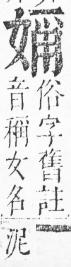 俗字舊註
音稱女名
泥